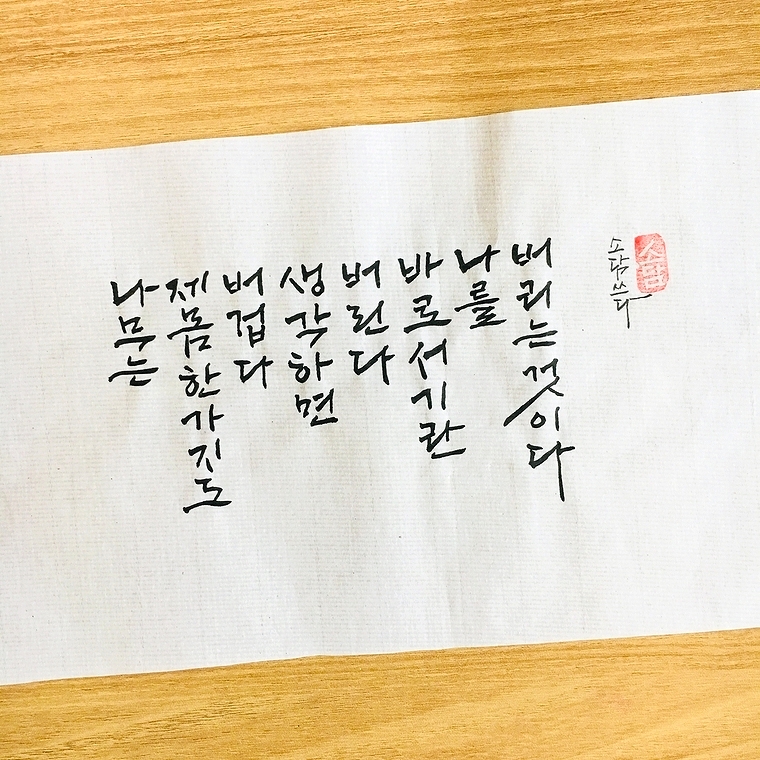 나무는
제몸한가지도
버겁다
생각하면
버린다
바로서기란
나를
버리는것이다
소담쓰다
소담